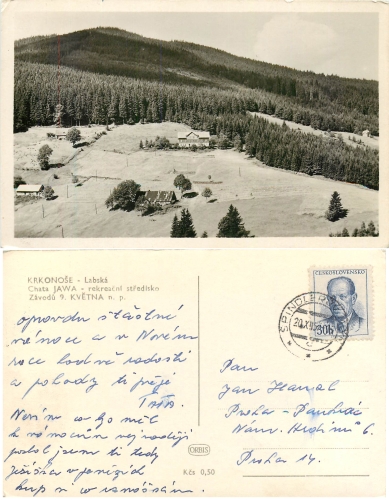 KRKONOŠE - Labská
Chata JAWA - rekreační středisko
Závodů 9. KVĚTNA n. p.
opravdu šťastné
vánoce a v Novém
roce hodně radosti
a pohody ti přeje
Táta.
Nevím co ti
k vánocům
jsem ti tedy
Ježíška v penězích
kup si
ORBIS
Kčs 0,50
ČESKOSLOVENSKO
30h
ŠPINDLERŮV
20.XII
Pan
Jan
Praha - Pankrác
Nám. Hrdinů 6
Praha 14.